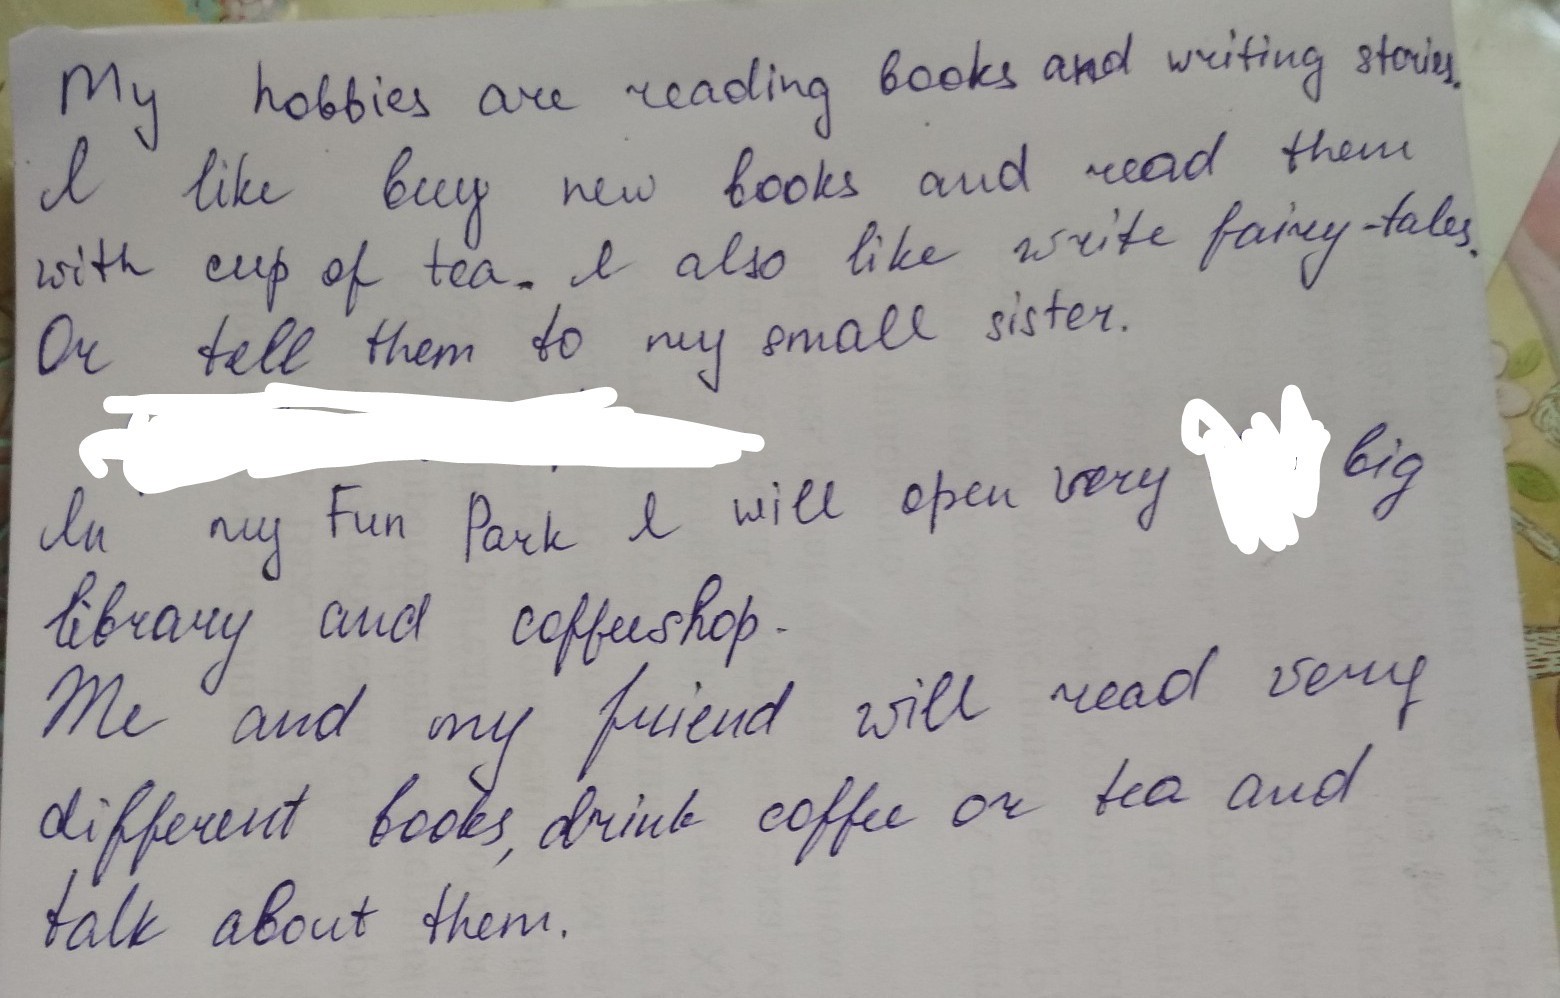 My hobbies are reading books and writing stories.
I like buy new books and read them
with cup of tea. I also like write fairy-tales.
Or tell them to my small sister.
In my Fun Park I will open very big
library and coffeeshop.
Me and my friend will read very
different books, drink coffee or tea and
talk about them.